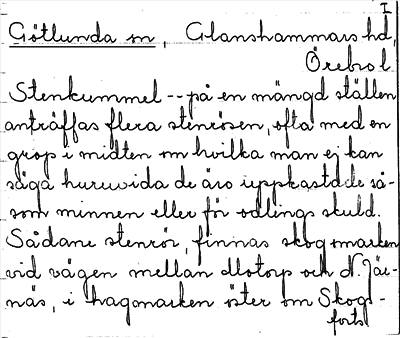 I
Götlunda sn, Glanshammars hd,
Örebro l.
Stenkummel -- på en mängd ställen
anträffas flera stenrösen, ofta med en
grop i midten om hvilka man ej kan
säga huruvida de äro uppkastade så-
som minnen eller för odlings skuld.
Sådane stenrör, finnas skogsmarken
vid vägen mellan och N. Jär-
näs, i hagmarken öster om Skogs-
forts